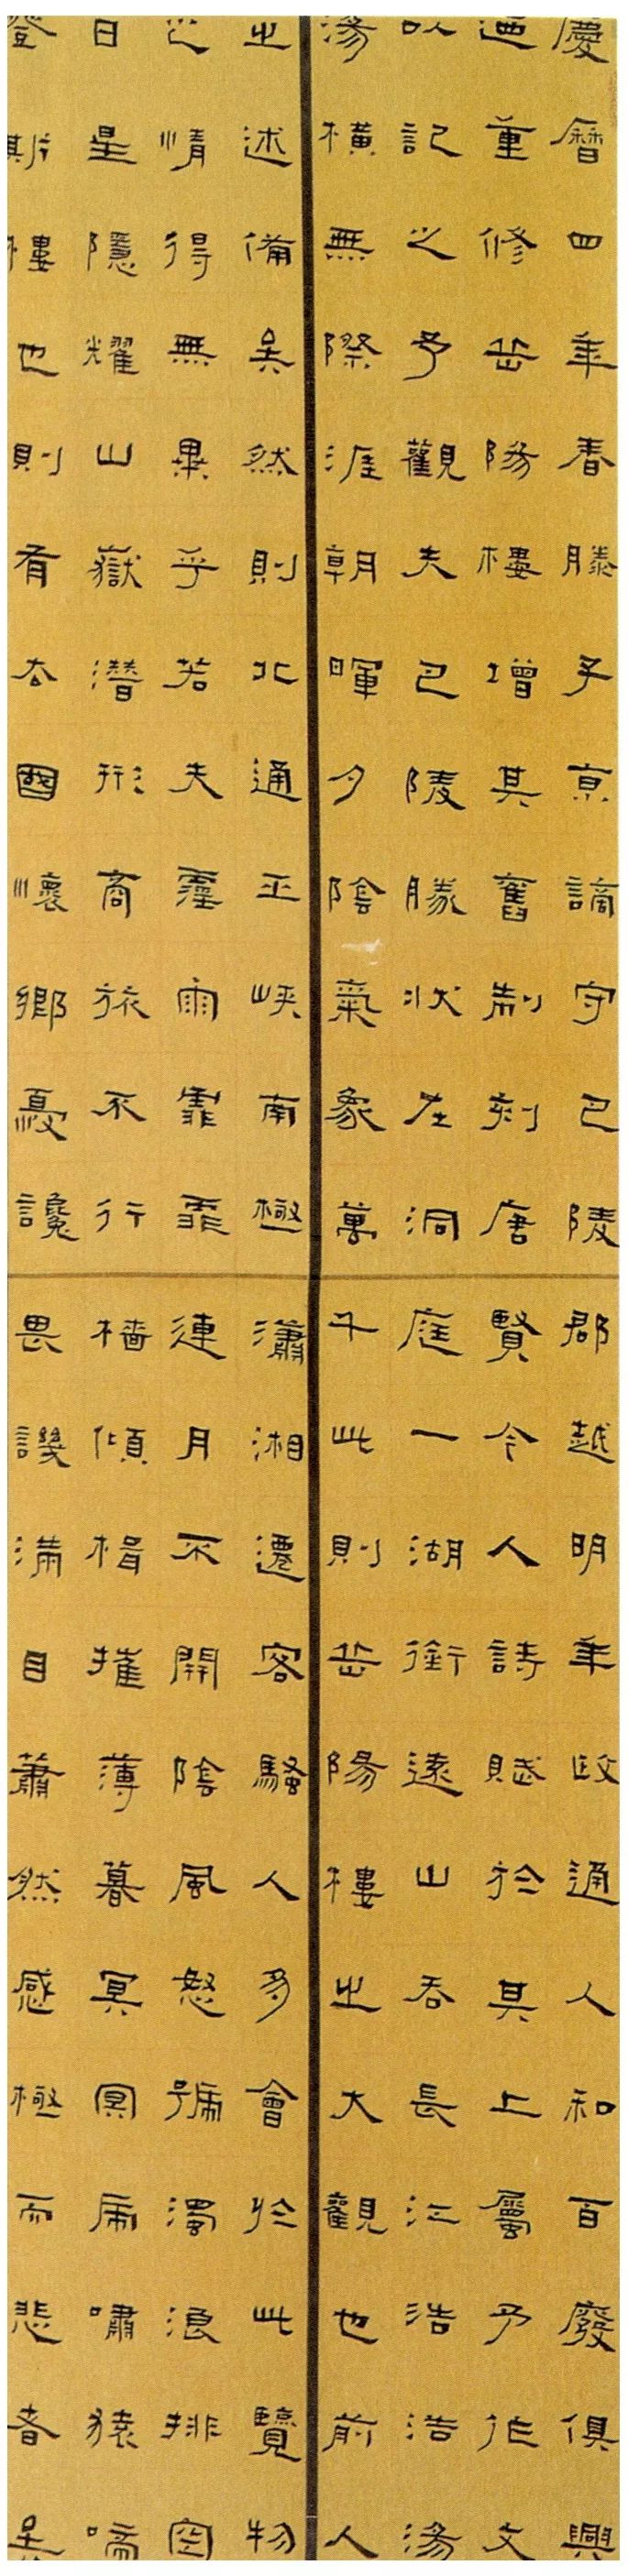 慶曆四年春滕子京謫守巴陵郡越明年政通人和百廢俱興
迺重修岳陽樓增其舊制刻唐賢今人詩賦於其上屬予作文
以記之予觀夫巴陵勝狀在洞庭一湖銜遠山吞長江浩浩湯
湯橫無際涯朝暉夕陰氣象萬千此則岳陽樓之大觀也前人
之述備矣然則北通巫峽南極瀟湘遷客騷人多會於此覽物
之情得無異乎若夫霪雨霏霏連月不開陰風怒號濁浪排空
日星隱耀山嶽潛形商旅不行檣傾楫摧薄暮冥冥虎嘯猿啼
登斯樓也則有去國懷鄉憂讒畏譏滿目蕭然感極而悲者矣